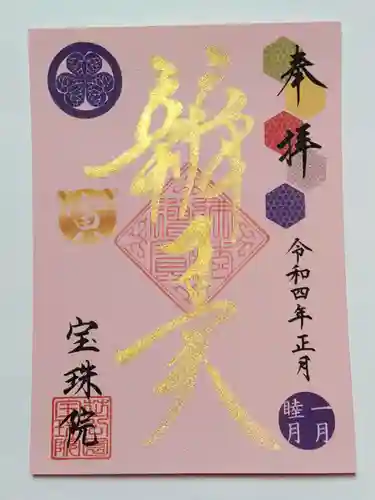 奉拝
令和四年正月
一月
睦月
辨天
寅
宝珠院